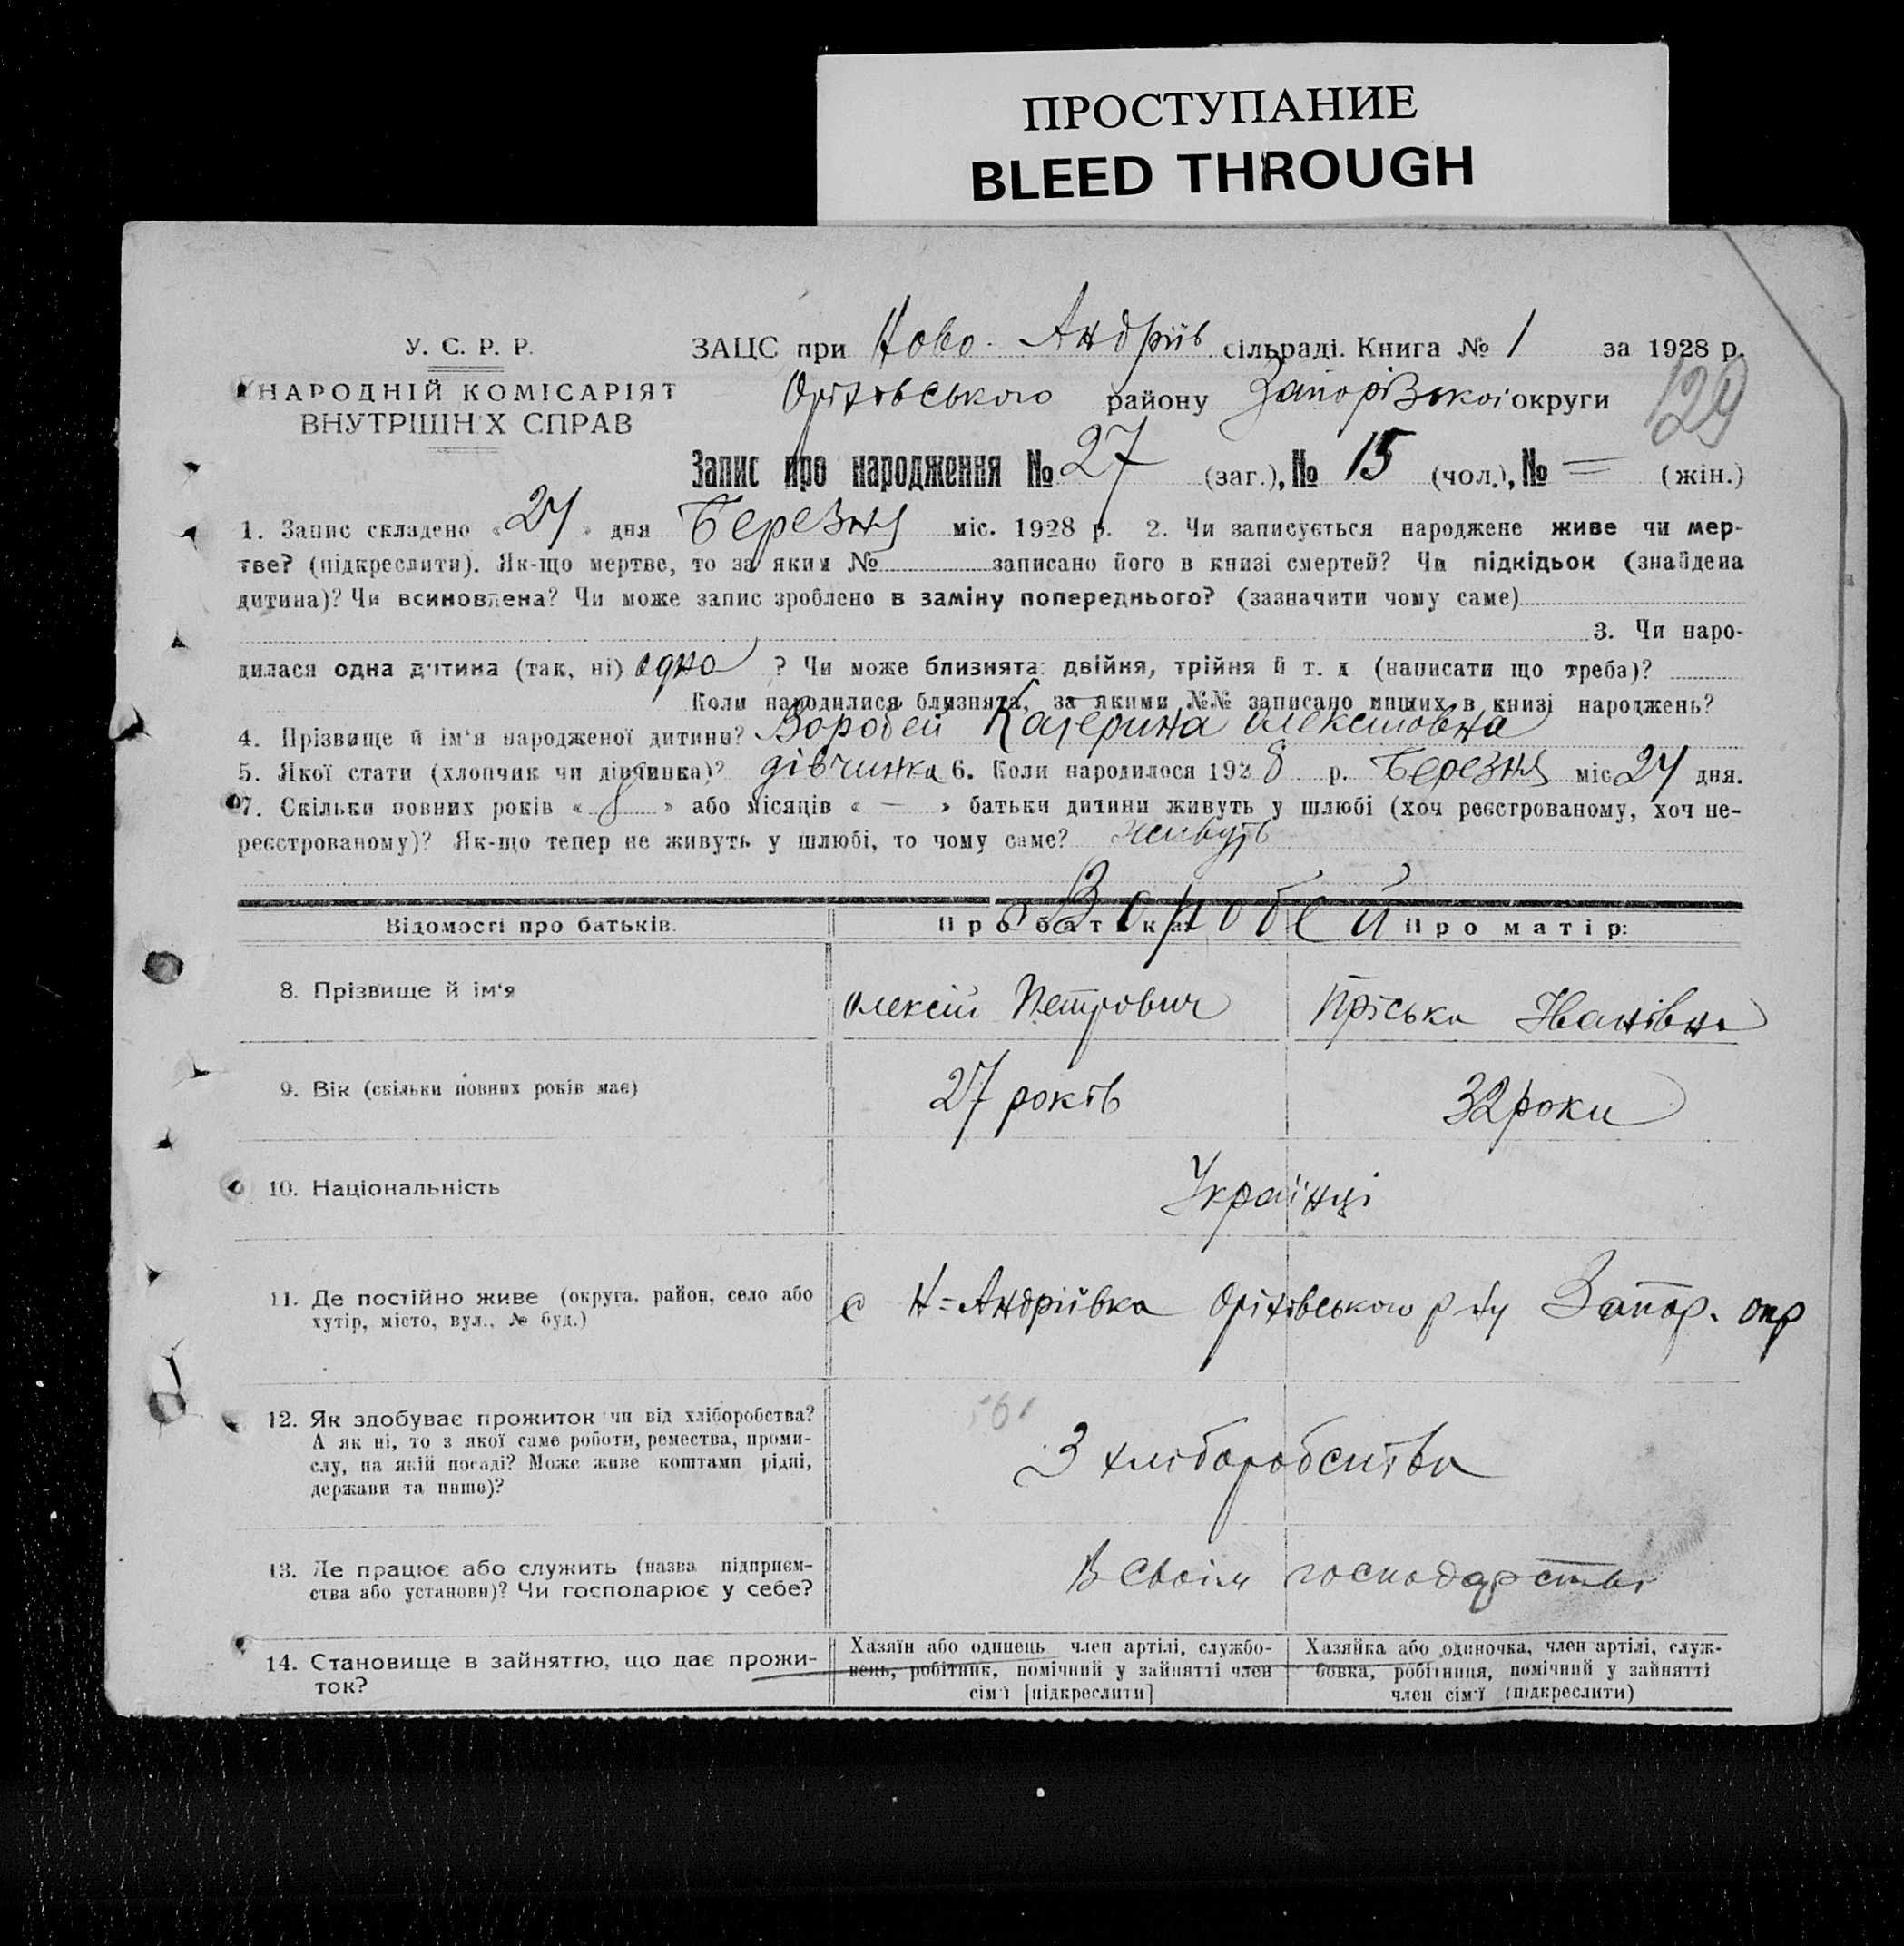 ПРОСТУПАНИЕ
BLEED THROUGH
У. С. Р. Р.
НАРОДНІЙ КОМІСАРІЯТ
ВНУТРІШНІХ СПРАВ
ЗАЦС при Ново-Андріїв сільраді. Книга № 1 за 1928 р.
Оріхівського району Запорізької округи
129
Запис про народження № 27 (заг.), № 15 (чол.), № = (жін.)
1. Запис складено « 27 » дня Березня міс. 1928 р. 2. Чи записується народжене живе чи мер-
тве? (підкреслити). Як-що мертве, то за яким № записано його в книзі смертей? Чи підкідьок (знайдена
дитина)? Чи всиновлена? Чи може запис зроблено в заміну попереднього? (зазначити чому саме)
3. Чи наро-
дилася одна дитина (так, ні) одно ? Чи може близнята: двійня, трійня й т. д (написати що треба)?
Коли народилися близнята, за якими №№ записано инших в книзі народжень?
4. Прізвище й ім'я народженої дитини? Воробей Катерина Олексіївна
5. Якої стати (хлопчик чи дівчинка)? дівчинка 6. Коли народилося 1928 р. Березня міс 24 дня.
7. Скільки повних років « 8 » або місяців « — » батьки дитини живуть у шлюбі (хоч реєстрованому, хоч не-
реєстрованому)? Як-що тепер не живуть у шлюбі, то чому саме? живуть
Воробей
Відомості про батьків. Про батька: Про матір:
8. Прізвище й ім'я Олексій Петрович Пріська Іванівна
9. Вік (скільки повних років має) 27 років 32 роки
10. Національність Українці
11. Де постійно живе (округа, район, село або
хутір, місто, вул., № буд.)
с Н=Андріївка Оріхівського р-ну Запор. окр
12. Як здобуває прожиток чи від хліборобства?
А як ні, то з якої саме роботи, ремества, проми-
слу, на якій посаді? Може живе коштами рідні,
держави та инше)?
З хліборобства
13. Де працює або служить (назва підприєм-
ства або установи)? Чи господарює у себе?
В своїм господарстві
14. Становище в зайняттю, що дає прожи-
ток?
Хазяїн або одинець, член артілі, службо-
вець, робітник, помічний у зайнятті член
сім'ї [підкреслити]
Хазяйка або одиночка, член артілі, служ-
бовка, робітниця, помічний у зайнятті
член сім'ї (підкреслити)